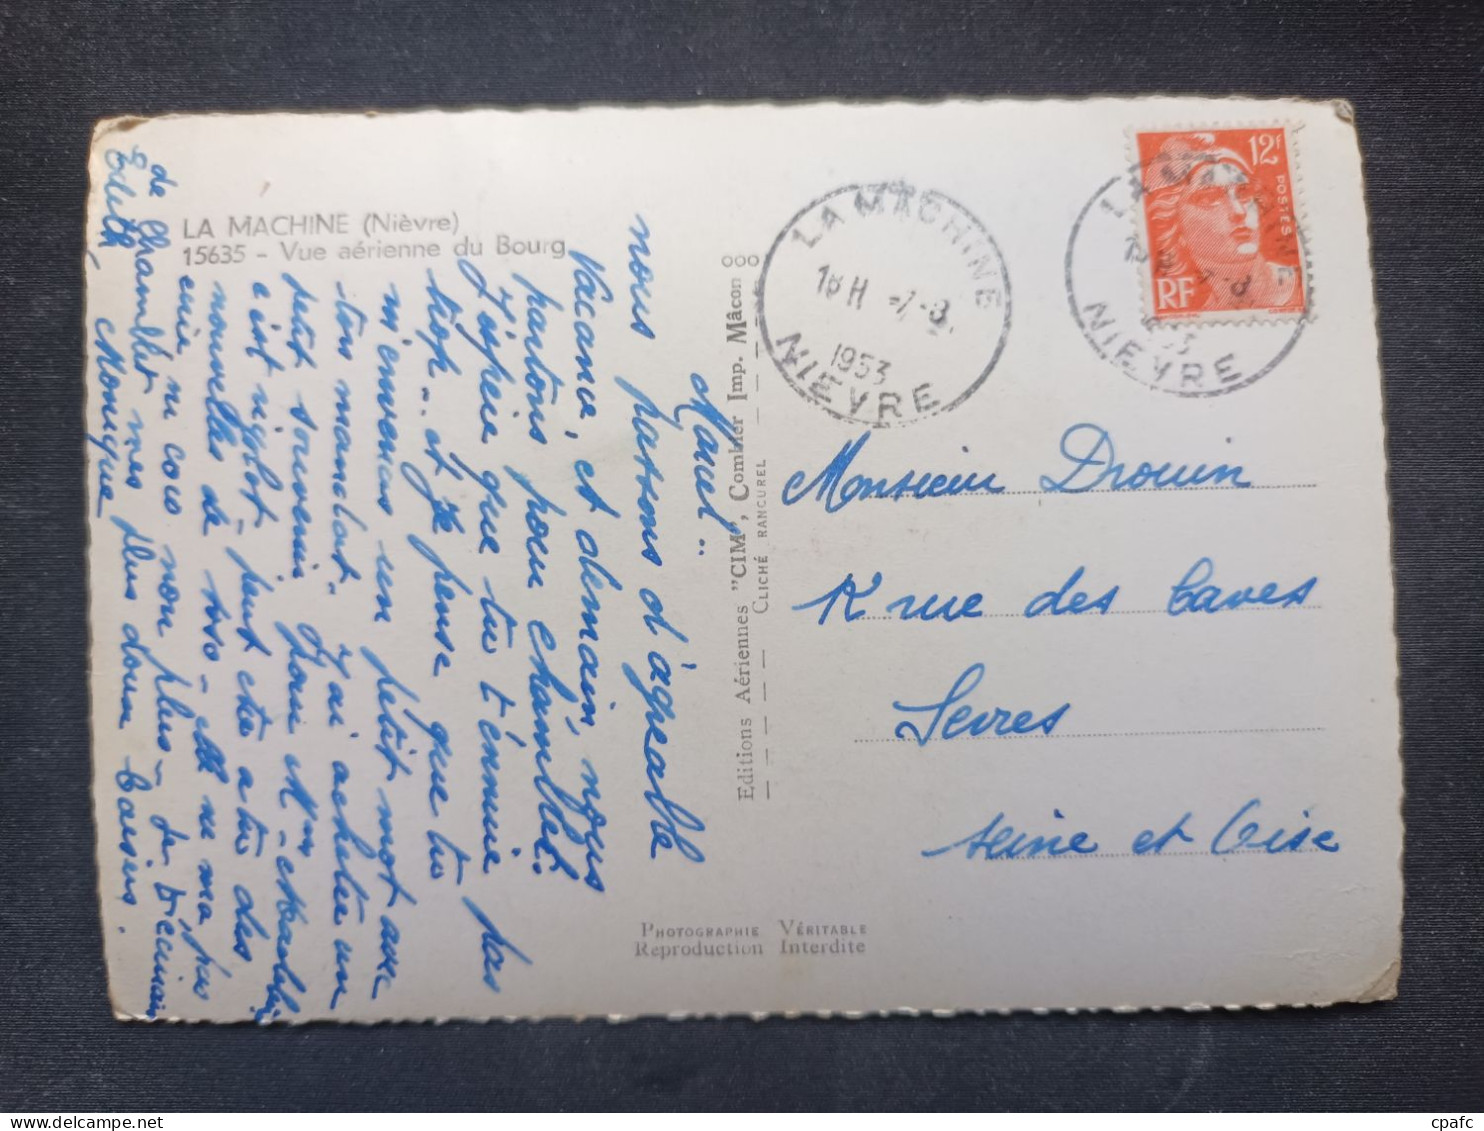 LA MACHINE (Nièvre)
15635 - Vue aérienne du Bourg
Manel..
nous passons d'agreable
Vacance, et demain, nous
partons pour Chamblet.
J'espère que tu t'ennuie pas
trop.. et je pense que tu
m'enverras un petit mot avec
ton mandat. J'ai acheter un
petit souvenir pour Mm
c'est rigolot, peut etre a tu des
nouvelles de elle ne ma pas
écrit ni cou non plus - Je t'écrirais
de Chamblet mes plus doux baisers.
Edith, Monique
ooo
Editions Aériennes "CIM", Combier Imp. Mâcon
CLICHÉ RANCUREL
PHOTOGRAPHIE VÉRITABLE
Reproduction Interdite
LA MACHINE
18H -7-8
1953
NIEVRE
12F
POSTES
RF
LA MACHINE
NIEVRE
Monsieur Drouin
rue des Caves
Sevres
seine et Oise
cpafc